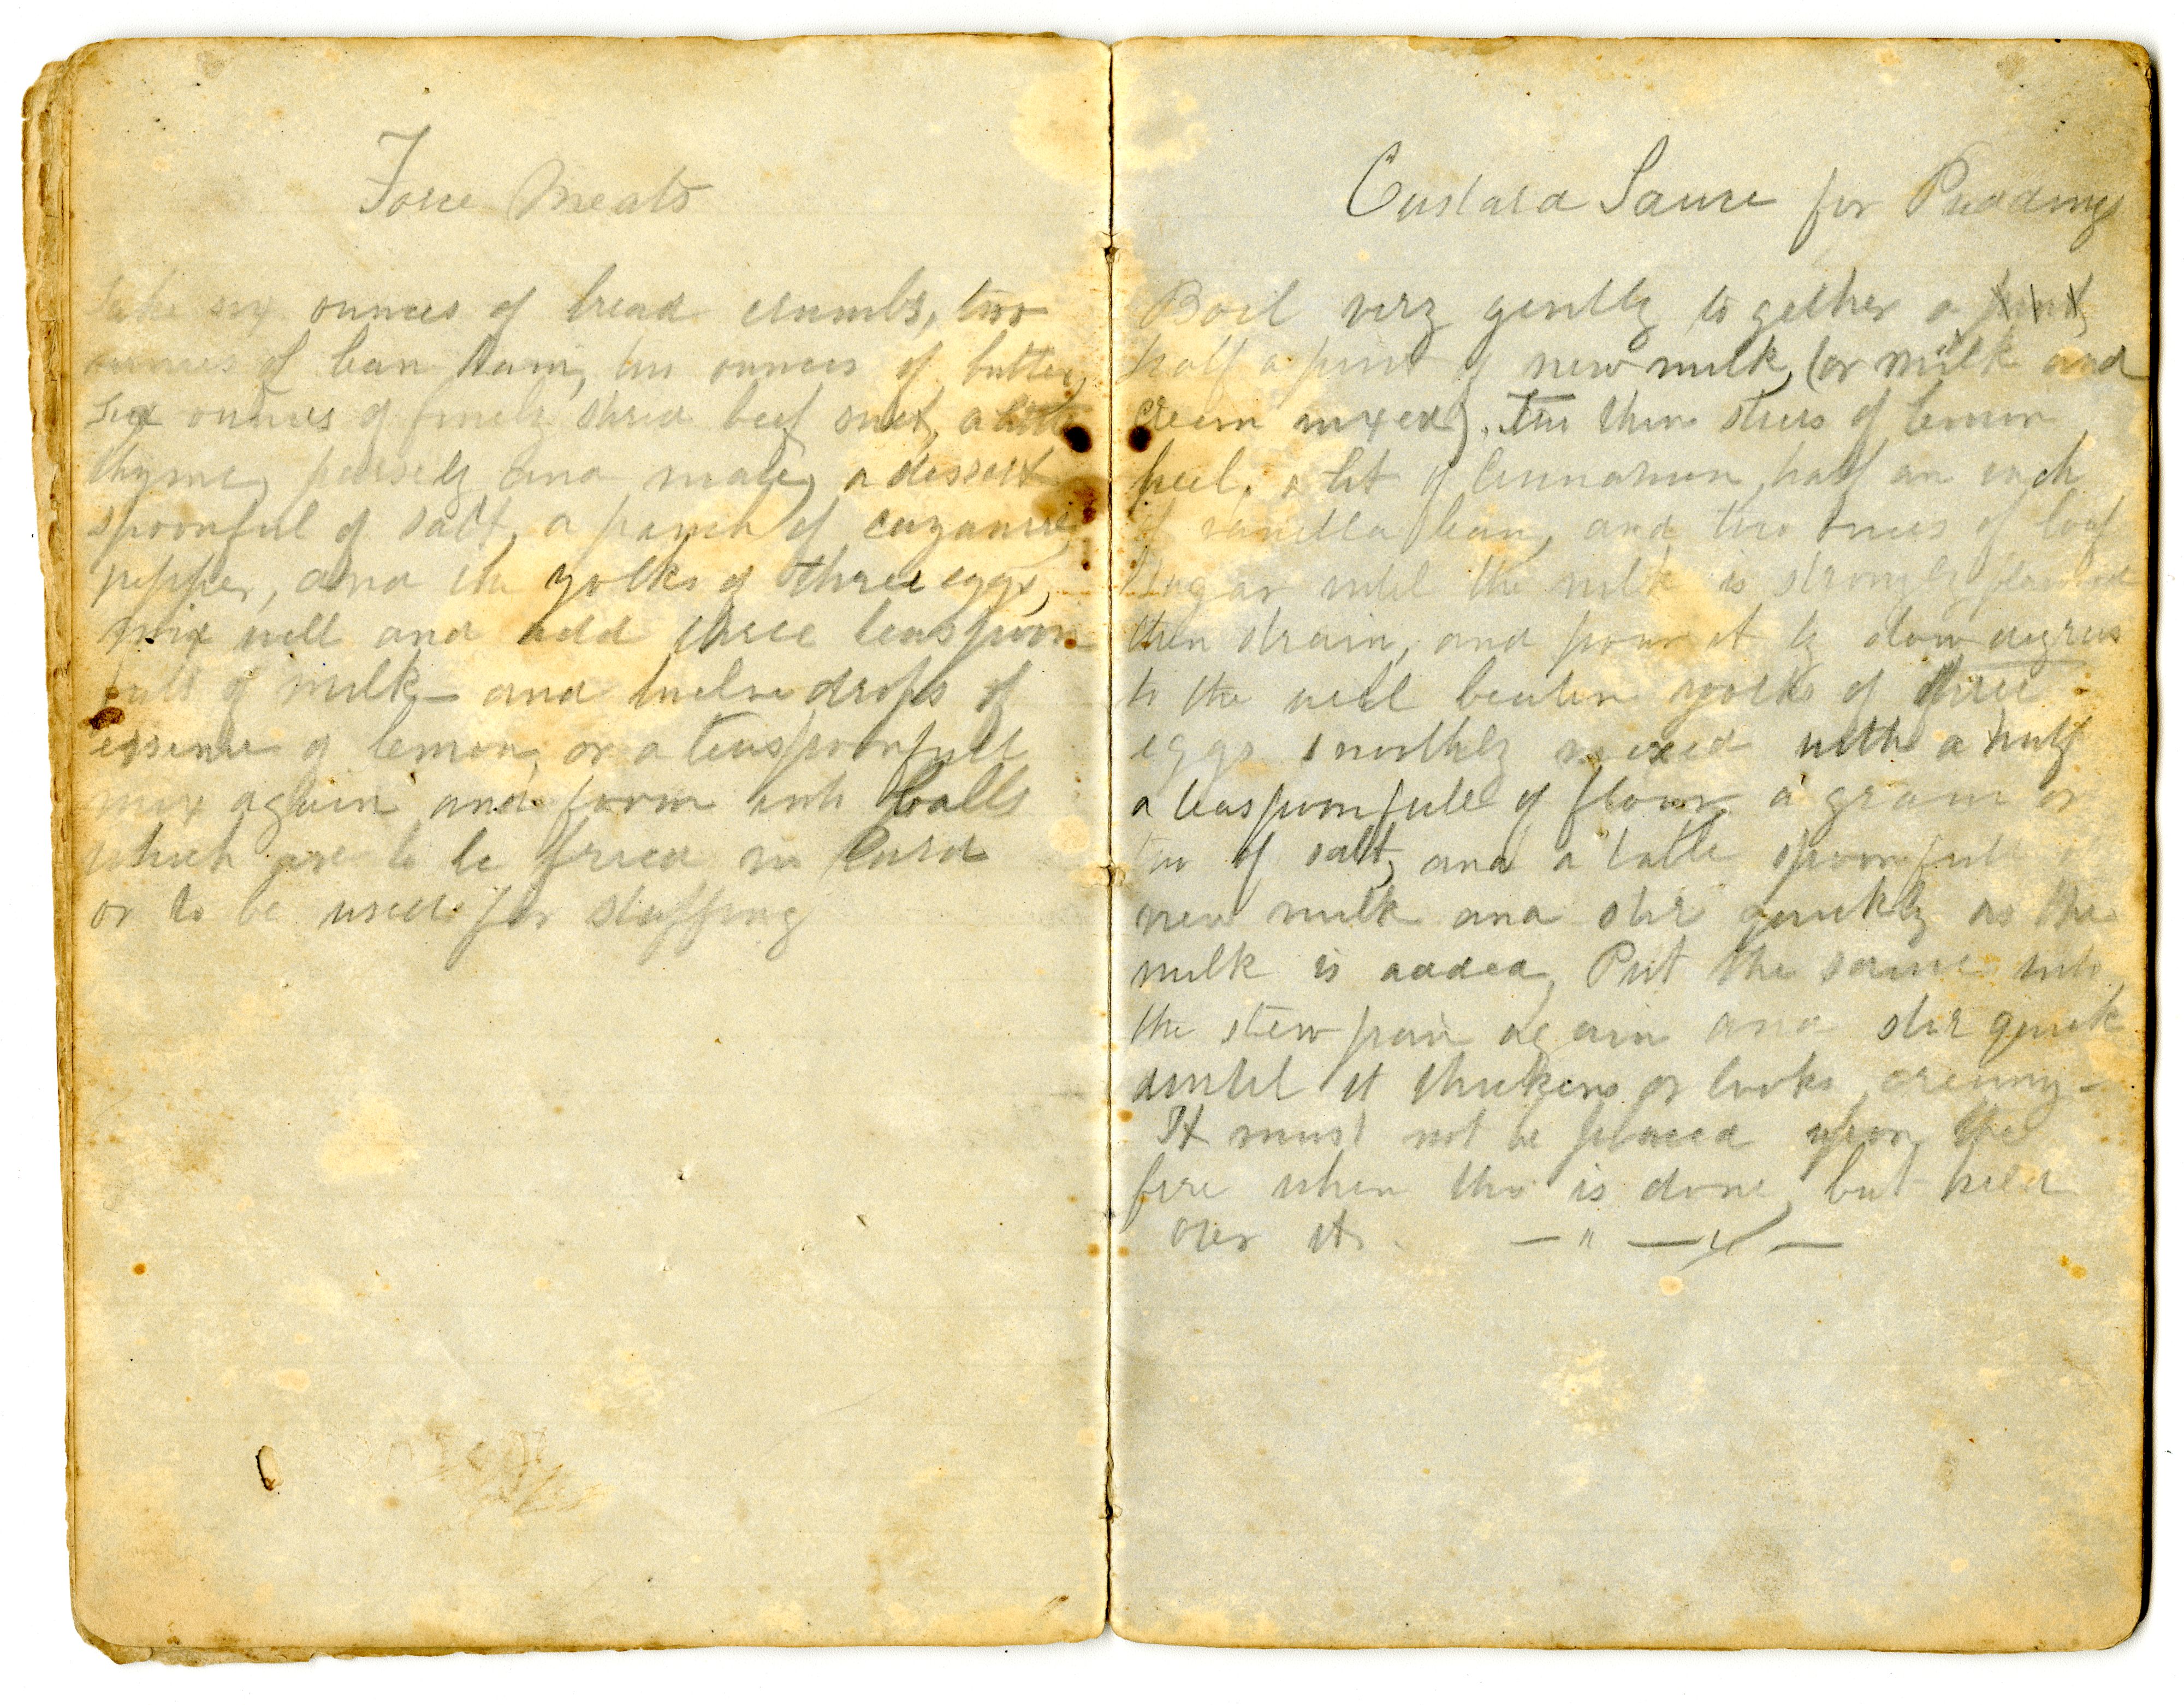 Force Meats
Take six ounces of bread crumbs, two
ounces of lean Ham, two ounces of butter,
six ounces of finely shred beef suet, a little
thyme, parsely and mace, a dessert
spoonful of salt, a pinch of cayanne
pepper, and the yolks of three eggs,
mix well and add three teaspoon
fulls of milk - and twelve drops of
essence of lemon, or a teaspoonfull
mix again and form into balls
which are to be fried in Lard
or to be used for stuffing
Custard Sauce for Puddings
Boil very gently together a pint
half a pint of new milk, (or milk and
cream mixed). Two thin slices of lemon
peel, a bit of cinnamon, half an inch
of vanilla bean, and two onces of loaf
sugar until the milk is strongly flavored
then strain, and pour it by slow degrees
to the well beaten yolks of three
eggs smoothly mixed with a half
a teaspoonfull of flour a grain or
two of salt, and a table spoonfull of
new milk and stir quickly as the
milk is added, Put the sauce into
the stew pan again and stir quick
until it thickens or looks creamy -
It must not be placed upon the
fire when this is done, but held
over it.